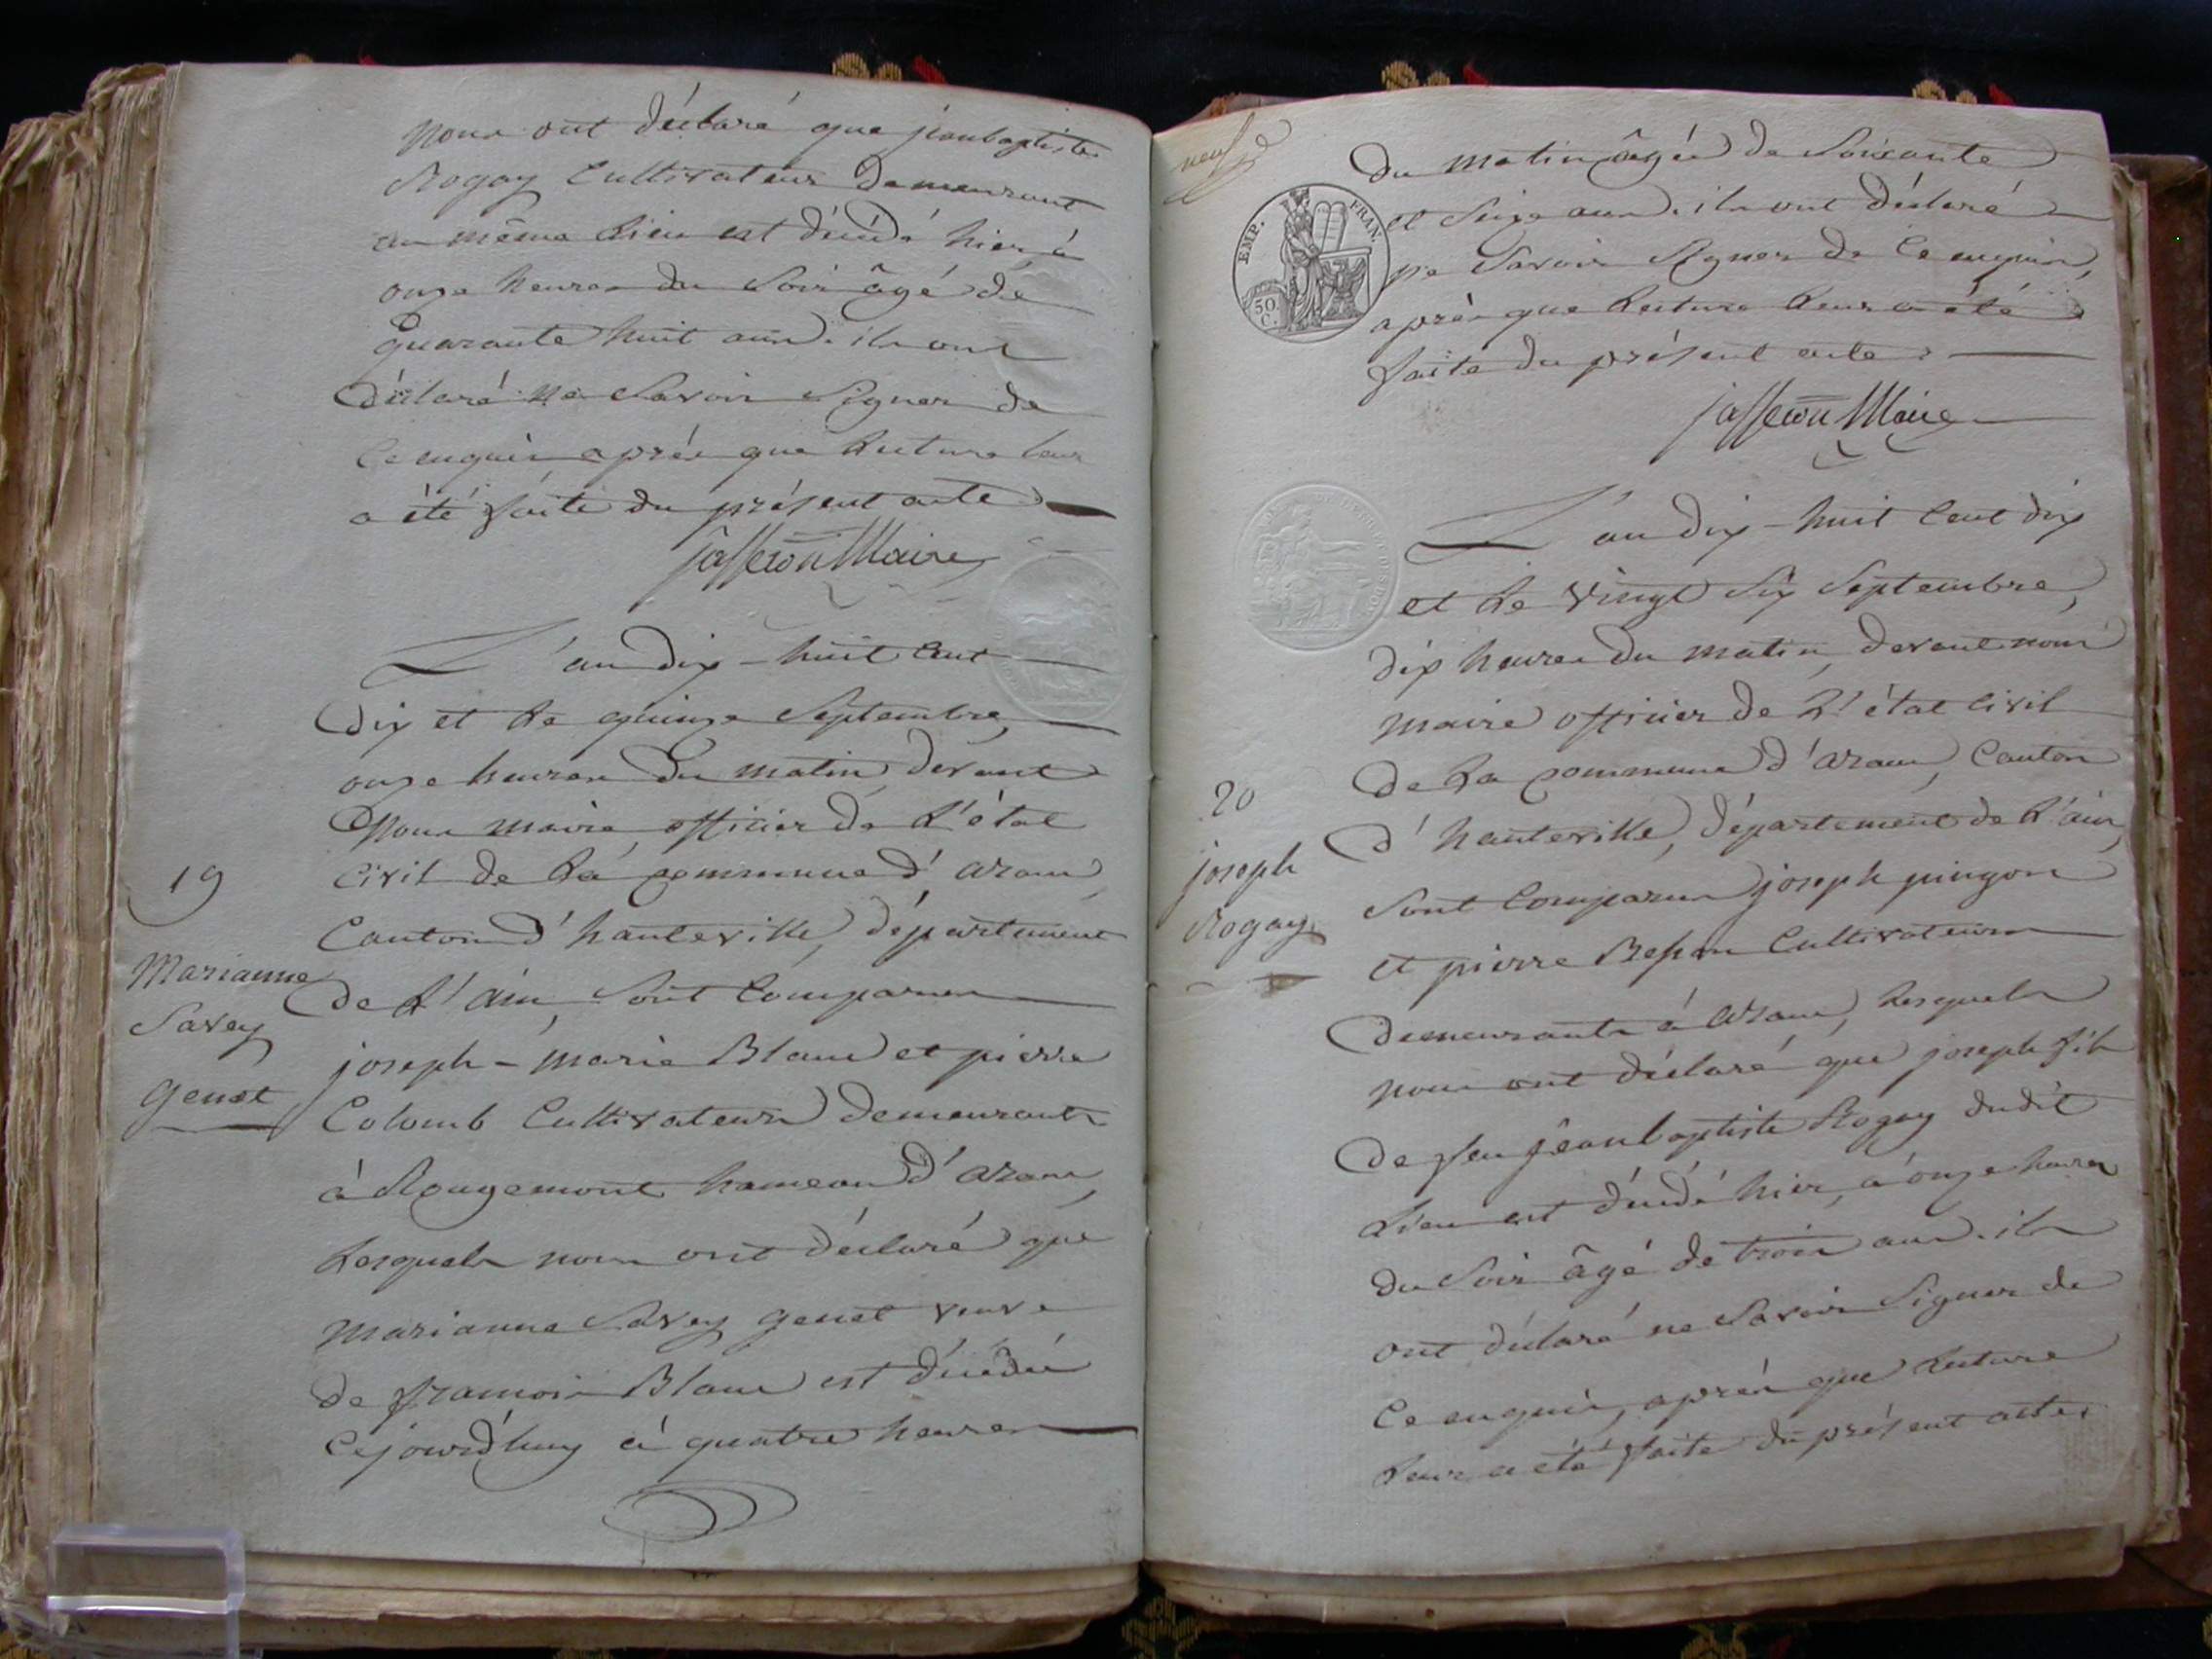 nous ont déclaré que jeanbaptiste
Rogay Cultivateur demeurant
au même Lieu est décédé hier à
onze heures du Soir âgé de
quarante huit ans. ils ont
déclaré ne Savoir Signer de
Ce enquis après que Lecture leur
a été faite du présent acte
Jasseron Maire
L'an dix-huit Cent
dix et Le quinze Septembre
onze heures du matin devant
Nous maire officier de L'état
Civil de La commune d'aranc,
Canton d'hauteville, département
de L'ain, Sont Comparus
19
Marianne
Savey
Genet
joseph-marie Blanc et pierre
Colomb Cultivateurs demeurants
à Rougemont hameau d'aranc,
Lesquels nous ont déclaré que
Marianne Savey genet veuve
de françois Blanc est décédée
Cejourd'huy à quatre heures
neuf
EMP. FRAN.
50 C.
du matin âgée de Soixante
et Seize ans. ils ont déclaré
ne Savoir Signer de Ce enquis,
après que Lecture Leur a été
faite du présent acte.
Jasseron Maire
L'an dix-huit Cent dix
et Le vingt Six Septembre,
dix heures du matin, devant nous
maire officier de L'état Civil
de La commune d'aranc, Canton
d'hauteville, département de L'ain,
20
joseph
Rogay
Sont Comparus joseph pingon
et pierre Cultivateurs
demeurants à aranc, Lesquels
nous ont déclaré que joseph fils
de feu jeanbaptiste Rogay dudit
Lieu est décédé hier, à onze heures
du Soir âgé de trois ans. ils
ont déclaré ne Savoir Signer de
Ce enquis, après que Lecture
Leur a été faite du présent acte.